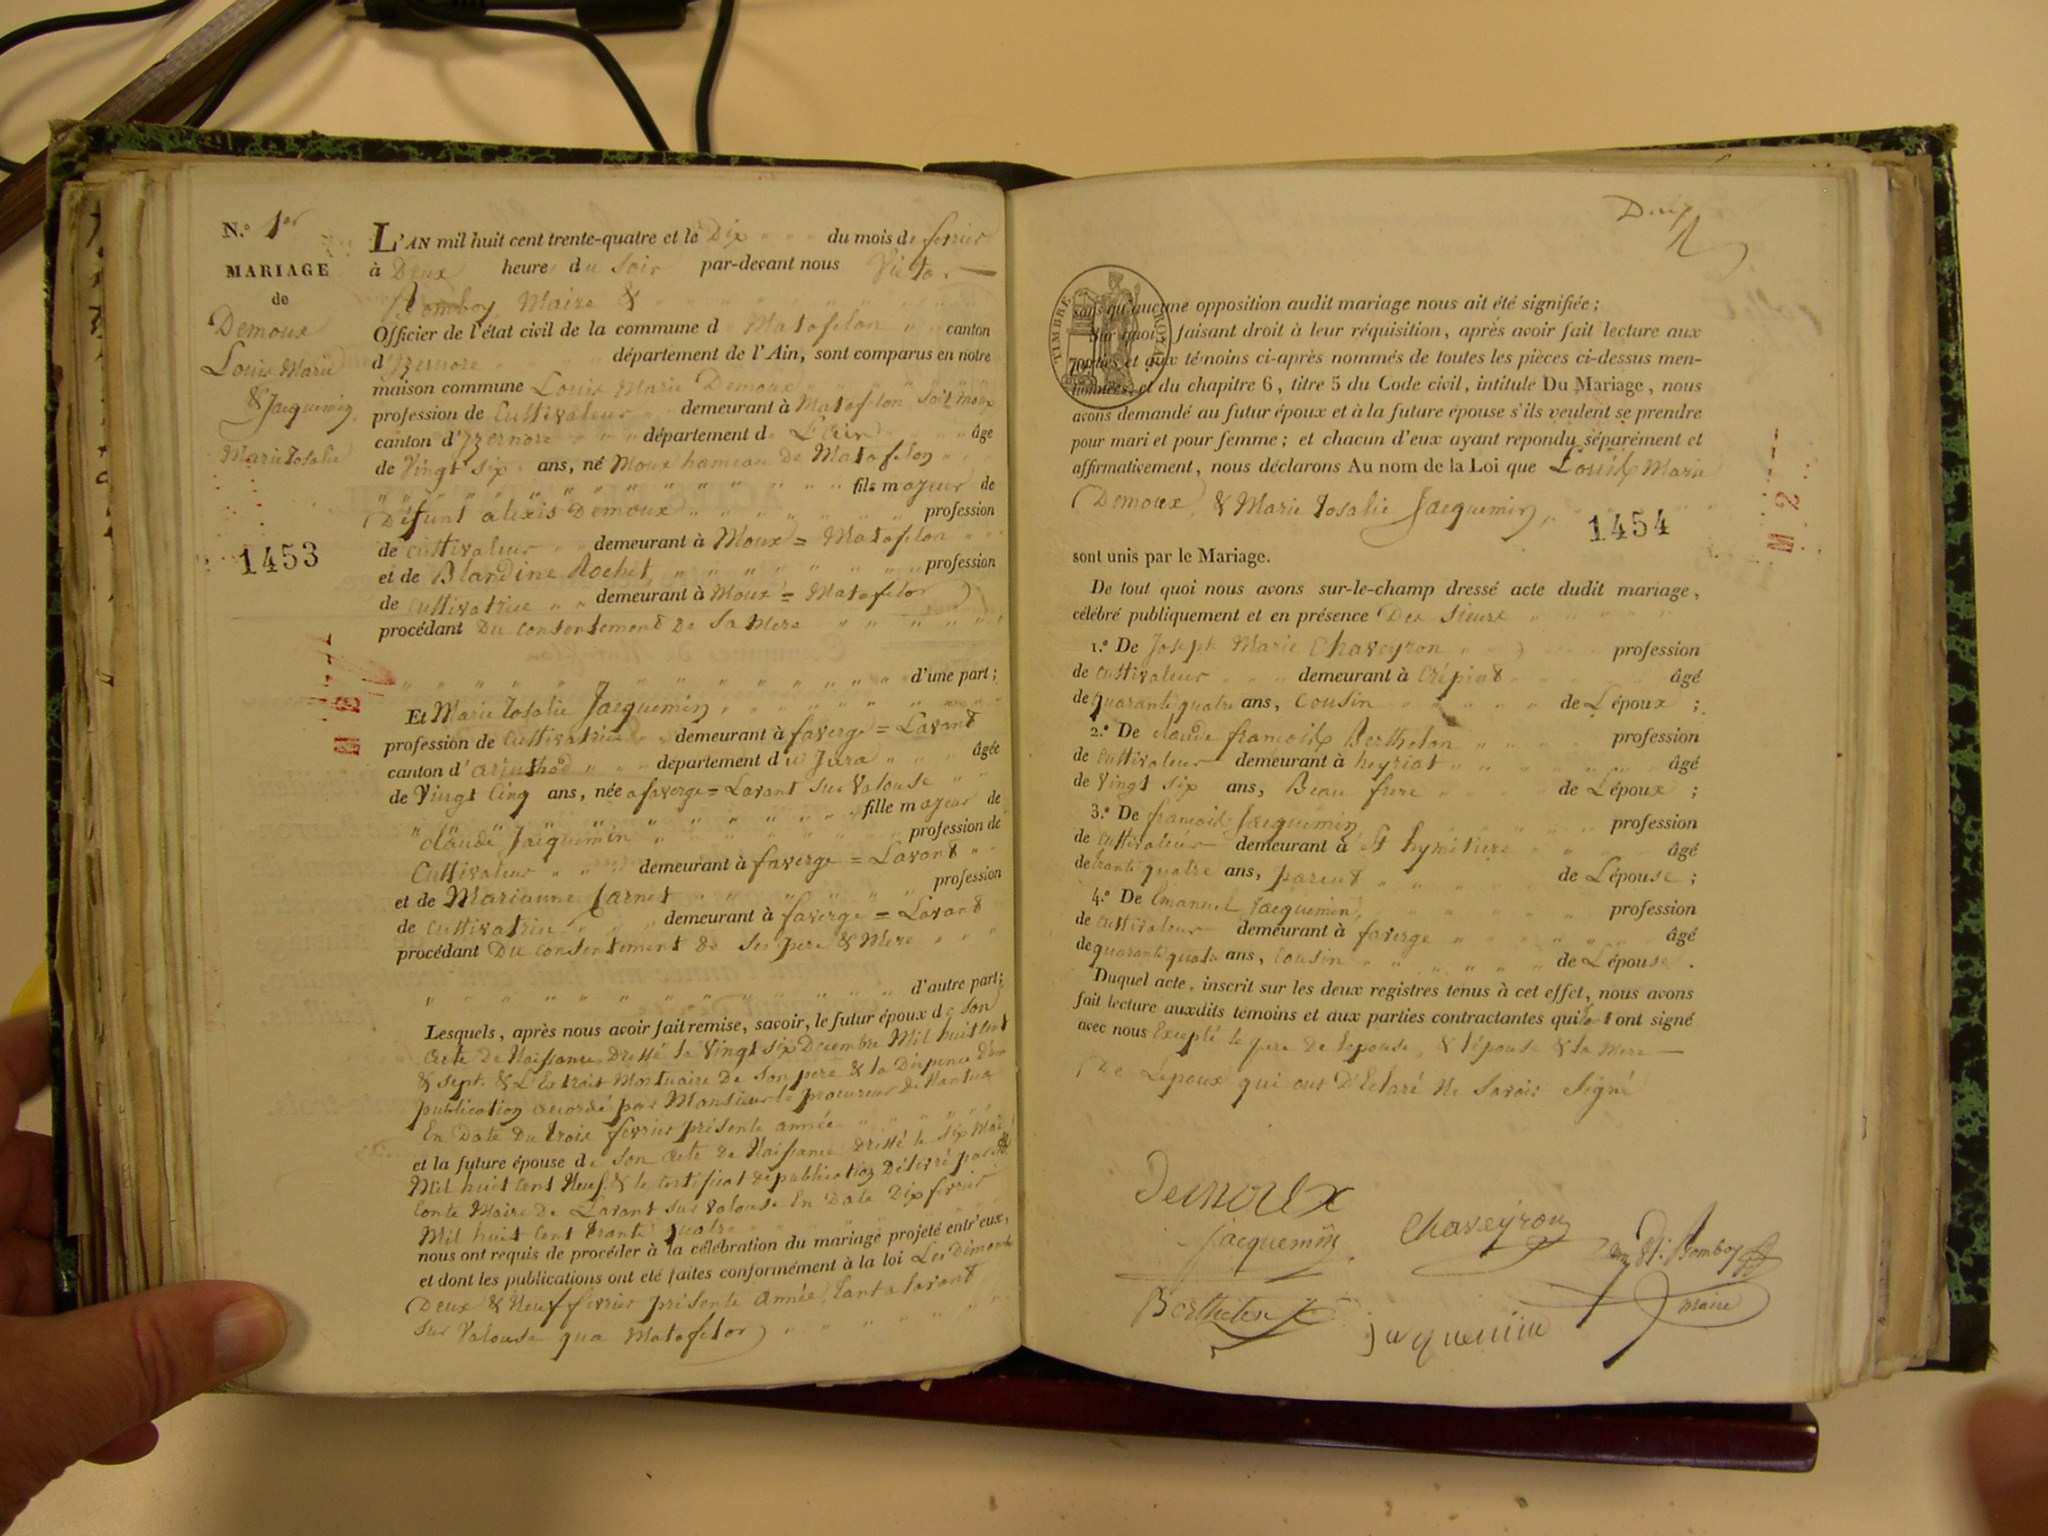 N.º 1er
MARIAGE
de
Demoux
Louis Marie
& Jacquemin
Marie Rosalie
1453
L'AN mil huit cent trente-quatre et le Dix du mois de fevrier
à Deux heures du Soir par-devant nous Victor
Bomboy, Maire &
Officier de l'état civil de la commune d Matafelon canton
d'Izernore département de l'Ain, sont comparus en notre
maison commune Louis Marie Demoux
profession de Cultivateur demeurant à Matafelon Soit Moux
canton d'Izernore département de L'ain âgé
de Vingt six ans, né Moux hameau De Matafelon
fils majeur de
Défunt alexis Demoux profession
de cultivateur demeurant à Moux = Matafelon
et de Blandine Rochet, profession
de cultivatrice demeurant à Moux = Matafelon
procédant Du consentement De Sa Mere
d'une part;
Et Marie Rosalie Jacquemin,
profession de Cultivatrice demeurant à faverge = Lavant
canton d'arinthod département du Jura âgée
de Vingt Cinq ans, née a faverge = Lavant sur Valouse
fille majeur de
claude Jacquemin profession de
Cultivateur demeurant à faverge = Lavant
et de Marianne profession
de Cultivatrice demeurant à faverge = Lavant
procédant Du consentement de ses pere & Mere
d'autre part;
Lesquels, après nous avoir fait remise, savoir, le futur époux de Son
acte De Naissance Dressé le Vingt six Decembre Mil huit cent
& sept. & L'Extrait Mortuaire De Son pere & la Dispence d'une
publication accordé par Monsieur le procureur de Nantua
En Date Du trois fevrier présente année
et la future épouse de Son acte de Naissance dressé le six Mai
Mil huit Cent Neuf & le certificat de publication Délivré par
Maire De Lavant sur Valouse En Date Dix fevrier
Mil huit Cent trante quatre
nous ont requis de procéder à la célébration du mariage projeté entr'eux,
et dont les publications ont été faites conformément à la loi Les Dimanche
Deux & Neuf fevrier présente année, tant a Lavant
sur Valouse qua Matafelon
TIMBRE ROYAL
sans qu'aucune opposition audit mariage nous ait été signifiée;
Sur quoi, faisant droit à leur réquisition, après avoir fait lecture aux
parties et aux témoins ci-après nommés de toutes les pièces ci-dessus men-
tionnées, et du chapitre 6, titre 5 du Code civil, intitulé Du Mariage, nous
avons demandé au futur époux et à la future épouse s'ils veulent se prendre
pour mari et pour femme; et chacun d'eux ayant répondu séparément et
affirmativement, nous déclarons Au nom de la Loi que Louis Marie
Demoux, & Marie Rosalie Jacquemin,
1454
sont unis par le Mariage.
De tout quoi nous avons sur-le-champ dressé acte dudit mariage,
célébré publiquement et en présence Des Sieurs
1.º De Joseph Marie Chaveyron profession
de cultivateur demeurant à Crépiat âgé
de quarante quatre ans, Cousin de L'époux;
2.º De claude francois Berthelon profession
de Cultivateur demeurant à heyriat âgé
de Vingt six ans, Beau frere de L'époux;
3.º De francois Jacquemin profession
de Cultivateur demeurant à St hymetiere âgé
de trante quatre ans, parent de L'épouse;
4.º De Emanuel Jacquemin, profession
de cultivateur demeurant à faverge âgé
de quarante quatre ans, cousin de L'épouse.
Duquel acte, inscrit sur les deux registres tenus à cet effet, nous avons
fait lecture auxdits témoins et aux parties contractantes qui ont signé
avec nous Excepté le pere de lepouse, & l'épouse & la Mere
De Lepoux qui ont D'Eclaré Ne Savoir Signé
Demoux
Jacquemin
Chaveyron
Bomboy
maire
Berthelon
jacquemin